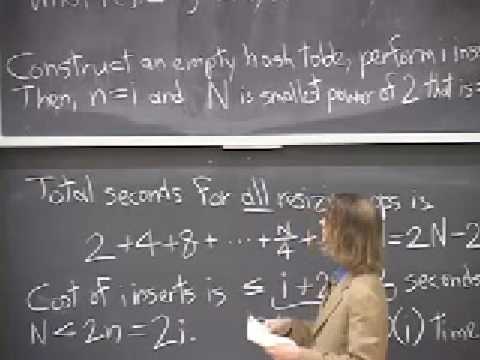 Construct an empty hash table, perform i
Then, n=i and N is smallest power of 2 that is
Total seconds for all is
2+4+8+ ⋯ + N/4 + =2N-2
Cost of i inserts is ≤ i+2 seconds
N<2n=2i. (i) time